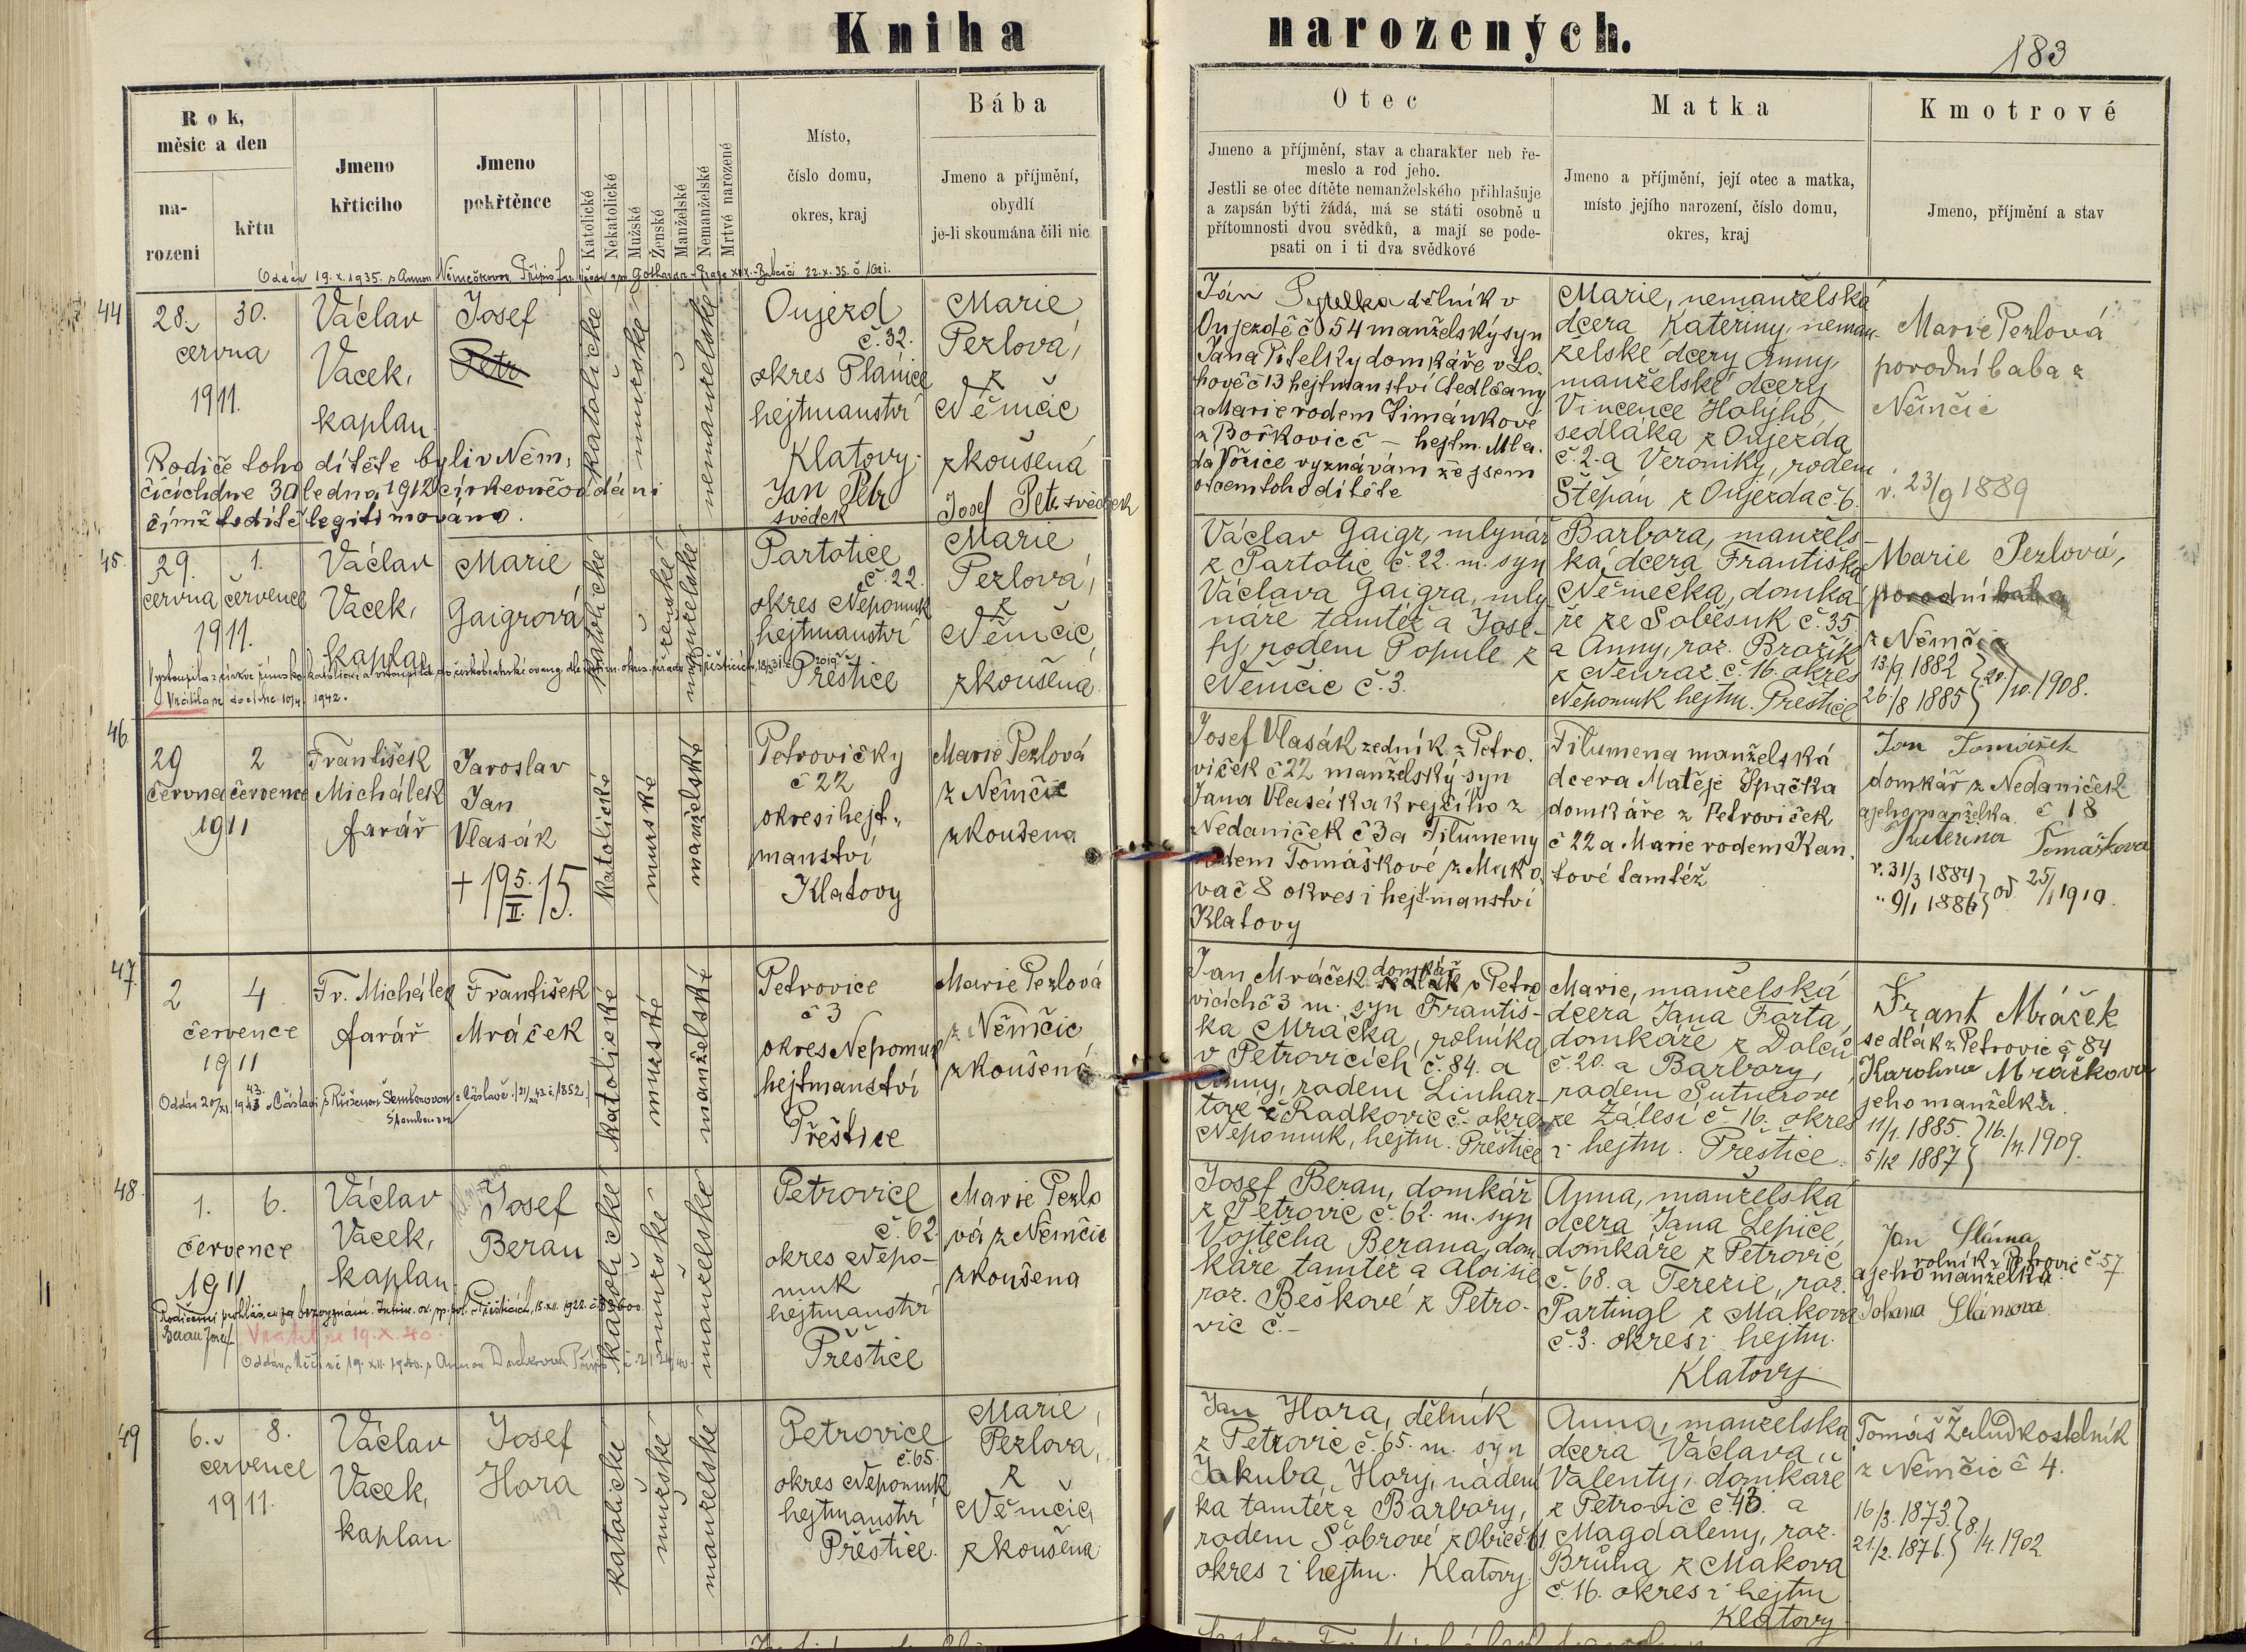 Kniha narozených.
183
Rok,
měsíc a den
na-
rození
křtu
Jmeno
křtícího
Jmeno
pokřtěnce
Katolické
Nekatolické
Mužské
Ženské
Manželské
Nemanželské
Mrtvě narozené
Místo,
číslo domu,
okres, kraj
Bába
Jmeno a příjmění,
obydlí
je-li skoumána čili nic
Otec
Jmeno a příjmění, stav a charakter neb ře-
meslo a rod jeho.
Jestli se otec dítěte nemanželského přihlašuje
a zapsán býti žádá, má se státi osobně u
přítomnosti dvou svědků, a mají se pode-
psati on i ti dva svědkové
Matka
Jmeno a příjmění, její otec a matka,
místo jejího narození, číslo domu,
okres, kraj
Kmotrové
Jmeno, příjmění a stav
Oddán 19.X.1935. s Annou Němečkovou
22.X.35.
44
28. 30.
června
1911.
Václav
Vacek,
kaplan
Josef
Petr
katolické
mužské
nemanželské
Oujezd
č. 32.
okres Plánice
hejtmanství
Klatovy.
Jan Petr
svědek
Marie
Pezlová,
z
Němčic
zkoušená
Josef Petr svědek
Rodiče toho dítěte byli v Něm,
čicích dne 30 ledna 1912 církevně oddáni
čímž to dítě legitimováno.
Jan dělník v
Oujezdě č 54 manželský syn
Jana Pitelky domkáře v Lo.
hově č 13 hejtmanství Sedlčany
a Marie rodem Šimánkove
z Bořkovic č – hejtm. Mla.
dá Vožice vyznávám že jsem
otcem toho dítěte
Marie, nemanželská
dcera Kateřiny, neman-
želské dcery Anny,
manželské dcery
Vincence Holýho,
sedláka z Oujezda
č. 2. a Veroniky, rodem
Štěpán z Oujezda č. 6.
Marie Pezlová
porodní baba z
Němčic
r. 23/9 1889
45.
29. 1.
června července
1911.
Václav
Vacek,
kaplan
Marie
Gaigrová
katolické
ženské
manželské
Partotice
č. 22.
okres Nepomuk
hejtmanství
Přeštice
Marie
Pezlová,
z
Němčic,
zkoušená.
Vrátila se do církve 1942.
Václav Gaigr, mlynář
z Partotic č. 22. m. syn
Václava Gaigra, mly
náře tamtéž a Jose-
fy, rodem Popule z
Němčic č. 3.
Barbora, manžels-
ká dcera Františka
Němečka, domká-
ře ze Soběsuk č. 35
a Anny, roz. Brožík
z Neuraz č. 16. okres
Nepomuk hejtm. Přeštice
Marie Pezlová,
porodní baba
z Němčic
13./9 1882
26./8 1885 } 20./10. 1908.
46.
29 2
června července
1911
František
Michálek
farář
Jaroslav
Jan
Vlasák
+ 19 5./II. 15.
katolické
mužské
manželské
Petrovičky
č 22
okres i hejt-
manství
Klatovy
Marie Pezlová
z Němčic
zkoušena
Josef Vlasák zedník z Petro.
viček č 22 manželský syn
Jana Vlasáka krejčího z
Nedaniček č 3 a Filumeny
rodem Tomáškové z Mako
va č 8 okres i hejtmanství
Klatovy
Filumena manželská
dcera Matěje Špačka
domkáře z Petroviček
č 22 a Marie rodem Kan.
tové tamtéž
Jan Tomášek
domkář z Nedaniček
a jeho manželka č 18
Kateřina Tomášková
r. 31/3 1884
" 9/1 1886 } od 25/1 1910.
47.
2 4
července
1911
Fr. Michálek
farář
František
Mráček
katolické
mužské
manželské
Petrovice
č 3
okres Nepomuk
hejtmanství
Přeštice
Marie Pezlová
z Němčic
zkoušená
Oddán 20/XI. 1943 v Čáslavi s Růženou Šemberovou z Čáslavě
Jan Mráček domkář
sedlák v Petro
vicích č 3 m. syn Františ-
ka Mráčka, rolníka
v Petrovicích č. 84. a
Anny, rodem Linhar-
tové z Radkovic č. – okres
Nepomuk, hejtm. Přeštice
Marie, manželská
dcera Jana Fořta,
domkáře z Dolců
č. 20. a Barbory,
rodem Sutnerové
ze Zálesí č 16. okres
i hejtm. Přeštice.
Frant Mráček
sedlák z Petrovic č 84
Karolina Mráčková
jeho manželka.
11/1. 1885.
5/12 1887 } 16./11. 1909.
48.
1. 6.
července
1911
Václav
Vacek,
kaplan.
Josef
Beran
katolické
mužské
manželské
Petrovice
č. 62
okres Nepo-
muk
hejtmanství
Přeštice
Marie Pezlo
vá z Němčic
zkoušena
Beran Josef
Vrátil se 19.X.40.
Oddán v Měčíně 19. XII. 1940. s Annou
Josef Beran, domkář
z Petrovic č. 62. m. syn
Vojtěcha Berana, dom
káře tamtéž a Aloisie
roz. Beškové z Petro-
vic č. –
Anna, manželská
dcera Jana Lepiče,
domkáře z Petrovic
č. 68. a Terezie, roz.
Partingl z Makova
č. 3. okres i hejtm.
Klatovy
Jan Sláma,
rolník z Petrovic č. 57.
a jeho manželka
Johana Slámova.
49
6. 8.
července
1911.
Václav
Vacek,
kaplan
Josef
Hora
katolické
mužské
manželské
Petrovice
č. 65.
okres Nepomuk
hejtmanství
Přeštice.
Marie,
Pezlova,
z
Němčic,
zkoušená
Jan Hora, dělník
z Petrovic č. 65. m. syn
Jakuba Hory, nádení
ka tamtéž a Barbory,
rodem Šobrové z Obic č. 61.
okres i hejtm. Klatovy.
Anna, manželská
dcera Václava
Valenty, domkáře
z Petrovic č. 43. a
Magdaleny, roz.
Brůha z Makova
č. 16. okres i hejtm
Klatovy
Tomáš Žalud kostelník
z Němčic č 4.
16/3. 1873.
21./2. 1876. } 8./4. 1902